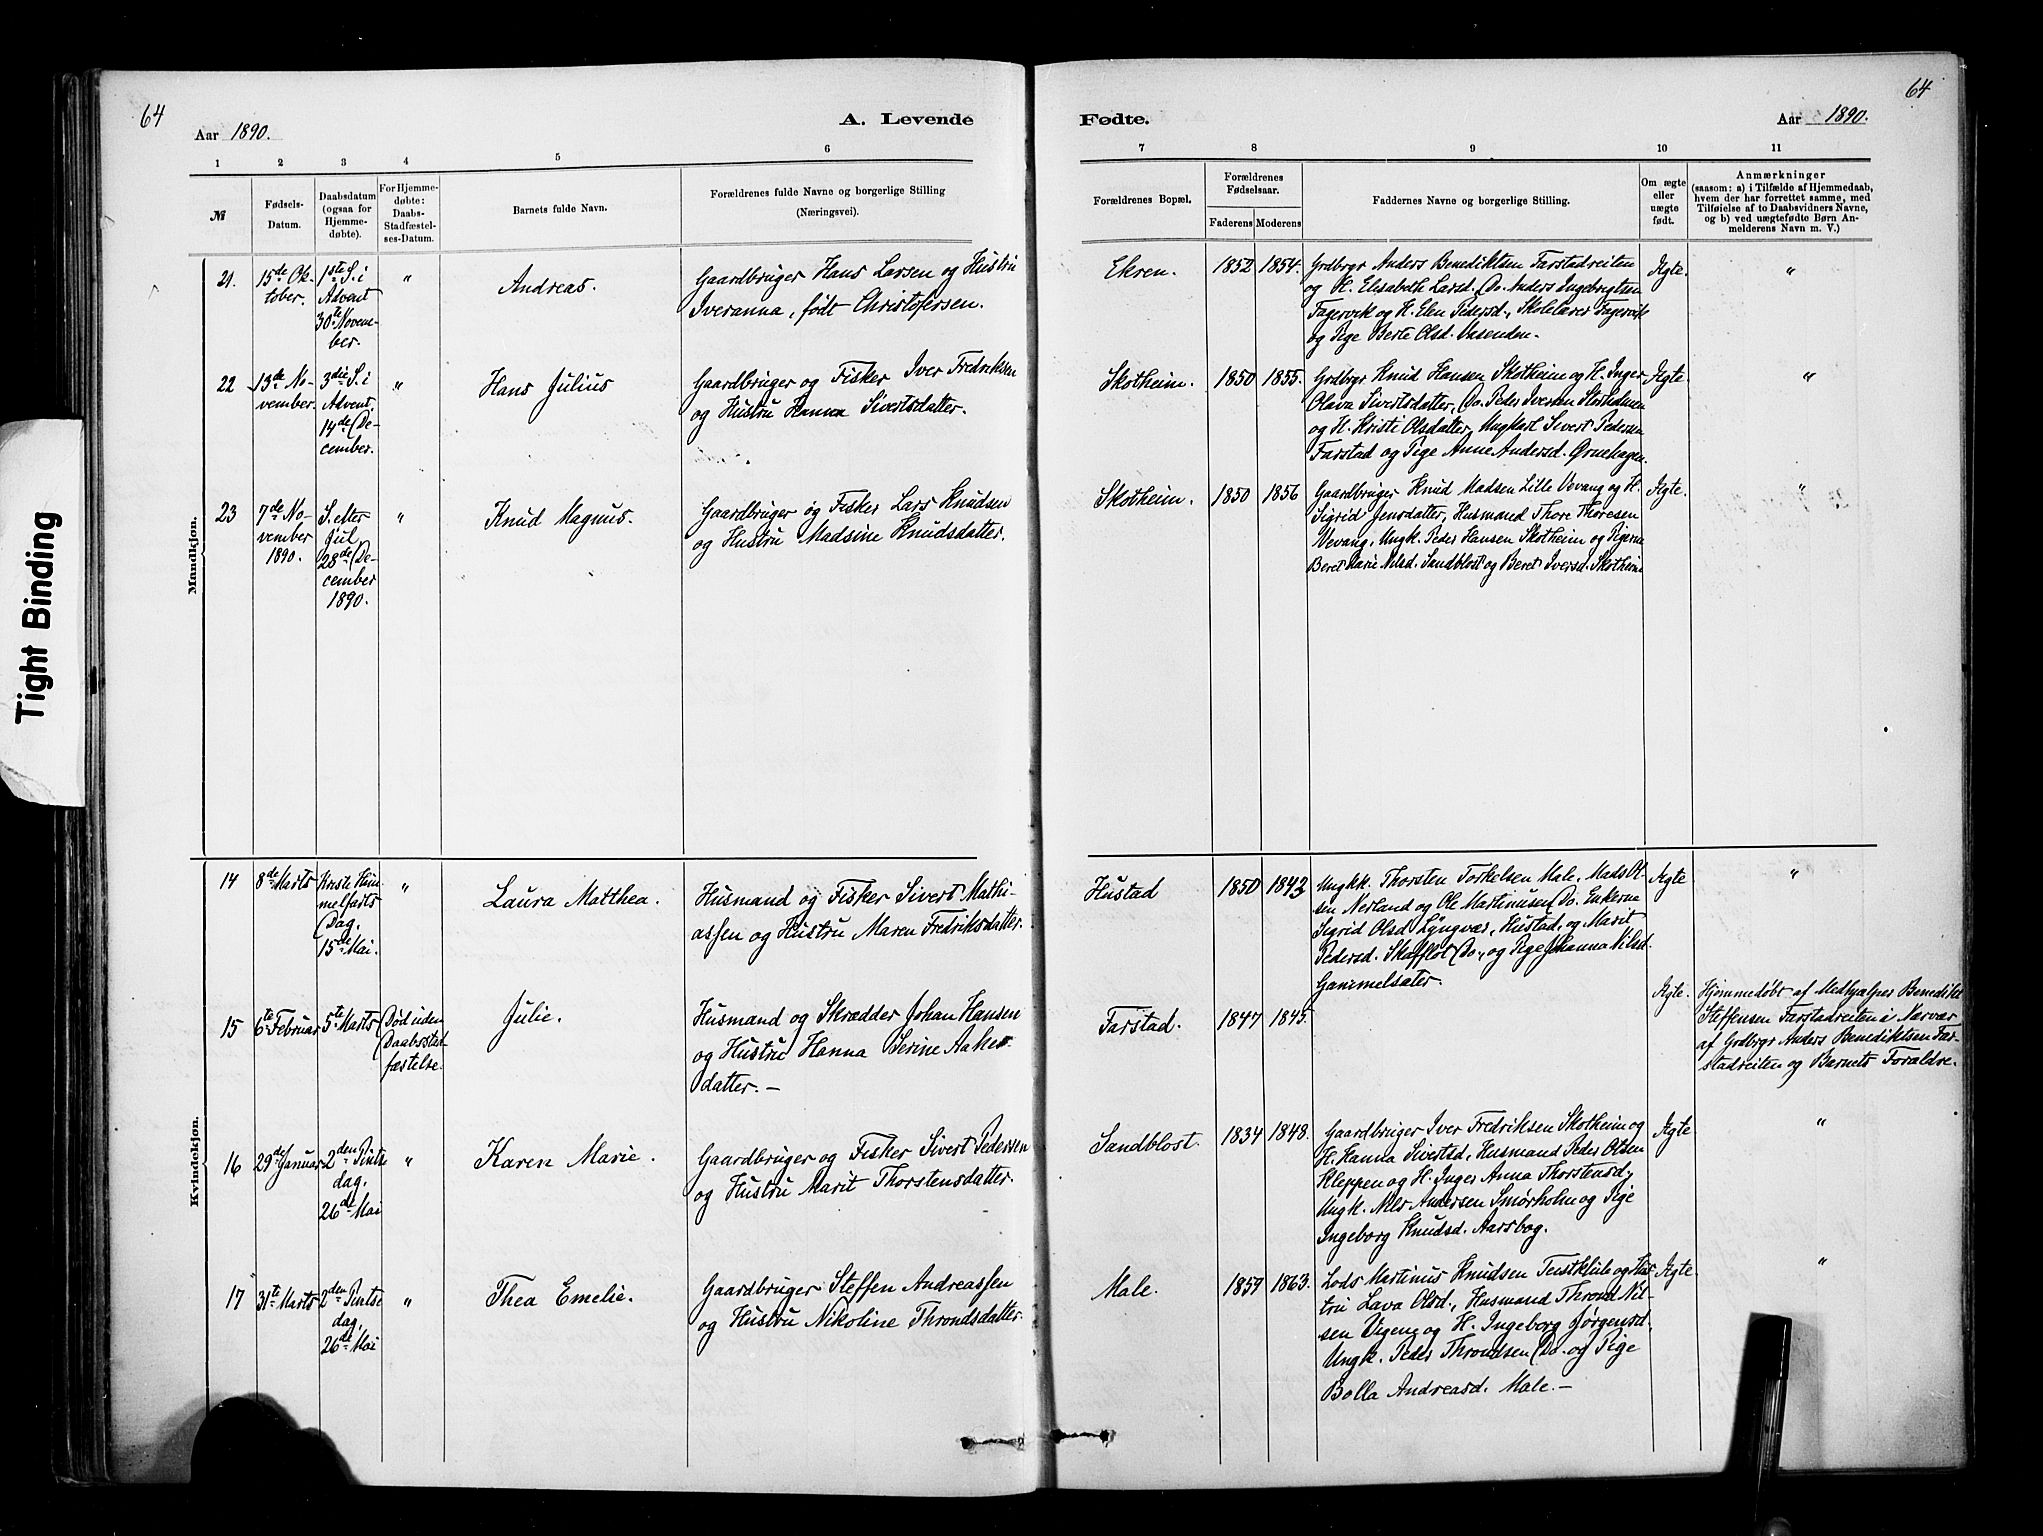 Tight Binding
64
Aar 1890.
A. Levende
1 2 3 4 5 6
№
Fødsels-
Datum.
Daabsdatum
(ogsaa for
Hjemme-
døbte).
For Hjemme-
døbte:
Daabs-
Stadfæstel-
ses-Datum.
Barnets fulde Navn.
Forældrenes fulde Navne og borgerlige Stilling
(Næringsvei).
Fødte.
64
Aar 1890.
7 8 9 10 11
Forældrenes Bopæl.
Forældrenes
Fødselsaar.
Faderens Moderens
Faddernes Navne og borgerlige Stilling.
Om ægte
eller
uægte
født.
Anmærkninger
(saasom: a) i Tilfælde af Hjemmedaab,
hvem der har forrettet samme, med
Tilføielse af to Daabsvidners Navne,
og b) ved uægtefødte Børn An-
melderens Navn m. V.)
Mandkjøn.
21.
15de Ok-
tober.
1ste S. i
Advent
30te Novem-
ber.
"
Andreas.
Gaardbruger Hans Larsen og Hustru
Iveranna, født Christofersen.
Ekren.
1852 1854.
Grdbrgr Anders Benediktsen Farstadreiten
og H. Elisabeth Larsd. Do. Anders Ingebrigtsen
Fagervik og H. Elen Pedersd., Skolelærer Fagervik
og Pige Berte Olsd. Vasenden.
Ægte.
"
22
13de No-
vember.
3die S. i
Advent,
14de De-
cember.
"
Hans Julius
Gaardbruger og Fisker Iver Fredriksen
og Hustru Hanna Sivertsdatter.
Skotheim.
1850 1855.
Grdbrgr Knud Hansen Skotheim og H. Inger
Olava Sivertsdatter, Do. Peder Iversen Storholmen
og H. Kristi Olsdatter, Ungkarl Sivert Pedersen
Farstad og Pige Anne Andersd. Ørnehagen.
Ægte.
"
23
7de No-
vember
1890.
S. efter
Jul
28de De-
cember
1890.
"
Knud Magnus.
Gaardbruger og Fisker Lars Knudsen
og Hustru Madsine Knudsdatter.
Skotheim.
1850 1856
Gaardbruger Knud Madsen Lille Vevang og H.
Sigrid Jensdatter, Husmand Thore Thoresen
Vevang, Ungk. Peder Hansen Skotheim og Pigerne
Beret Marie Nilsd. Sandblost og Beret Iversd. Skotheim
Ægte.
"
Kvindekjøn.
14
8de Marts
Kristi Him-
melfarts
Dag,
15de Mai.
"
Laura Matthea.
Husmand og Fisker Sivert Mathi-
assen og Hustru Maren Fredriksdatter.
Hustad
1850 1843
Ungkk. Thorsten Torkelsen Male, Mads Ol-
sen Nerland og Ole Martinusen Do. Enkerne
Sigrid Olsd Lyngvær, Hustad, og Marit
Pedersd. Skafflot Do., og Pige Johanna Nilsd.
Gammelsæter.
Ægte
"
15
6te Februar
5te Marts
Død uden
Daabsstad-
fæstelse.
Julie.
Husmand og Skrædder Johan Hansen
og Hustru Hanna Serine Aaker-
datter. —
Farstad.
1847 1845.
Ægte.
Hjemmedøbt af Medhjælper Benedikt
Steffensen Farstadreiten i Nærvær
af Grdbrgr Anders Benediktsen Far-
stadreiten og Barnets Forældre.
16
29de Januar
2den Pintse
dag,
26de Mai
"
Karen Marie.
Gaardbruger og Fisker Sivert Pedersen
og Hustru Marit Thorstensdatter.
Sandblost.
1834 1848.
Gaardbruger Iver Fredriksen Skotheim og
H. Hanna Sivertsd., Husmand Peder Olsen
Kleppen og H. Inger Anna Thorstensd,
Ungk. Nils Andersen Smørholm og Pige
Ingeborg Knudsd. Aarsbog.
Ægte
"
17
31te Marts
2den Pintse
dag,
26de Mai
"
Thea Emelie.
Gaardbruger Steffen Andreassen
og Hustru Nikoline Throndsdatter.
Male.
1859 1863.
Lods Martinus Knudsen Teistklub og Hus-
tru Lava Olsd., Husmand Thrond Nil-
sen Vigeng og H. Ingeborg Jørgensd.
Ungk. Peder Throndsen Do. og Pige
Bolla Andreasd. Male. —
Ægte.
"